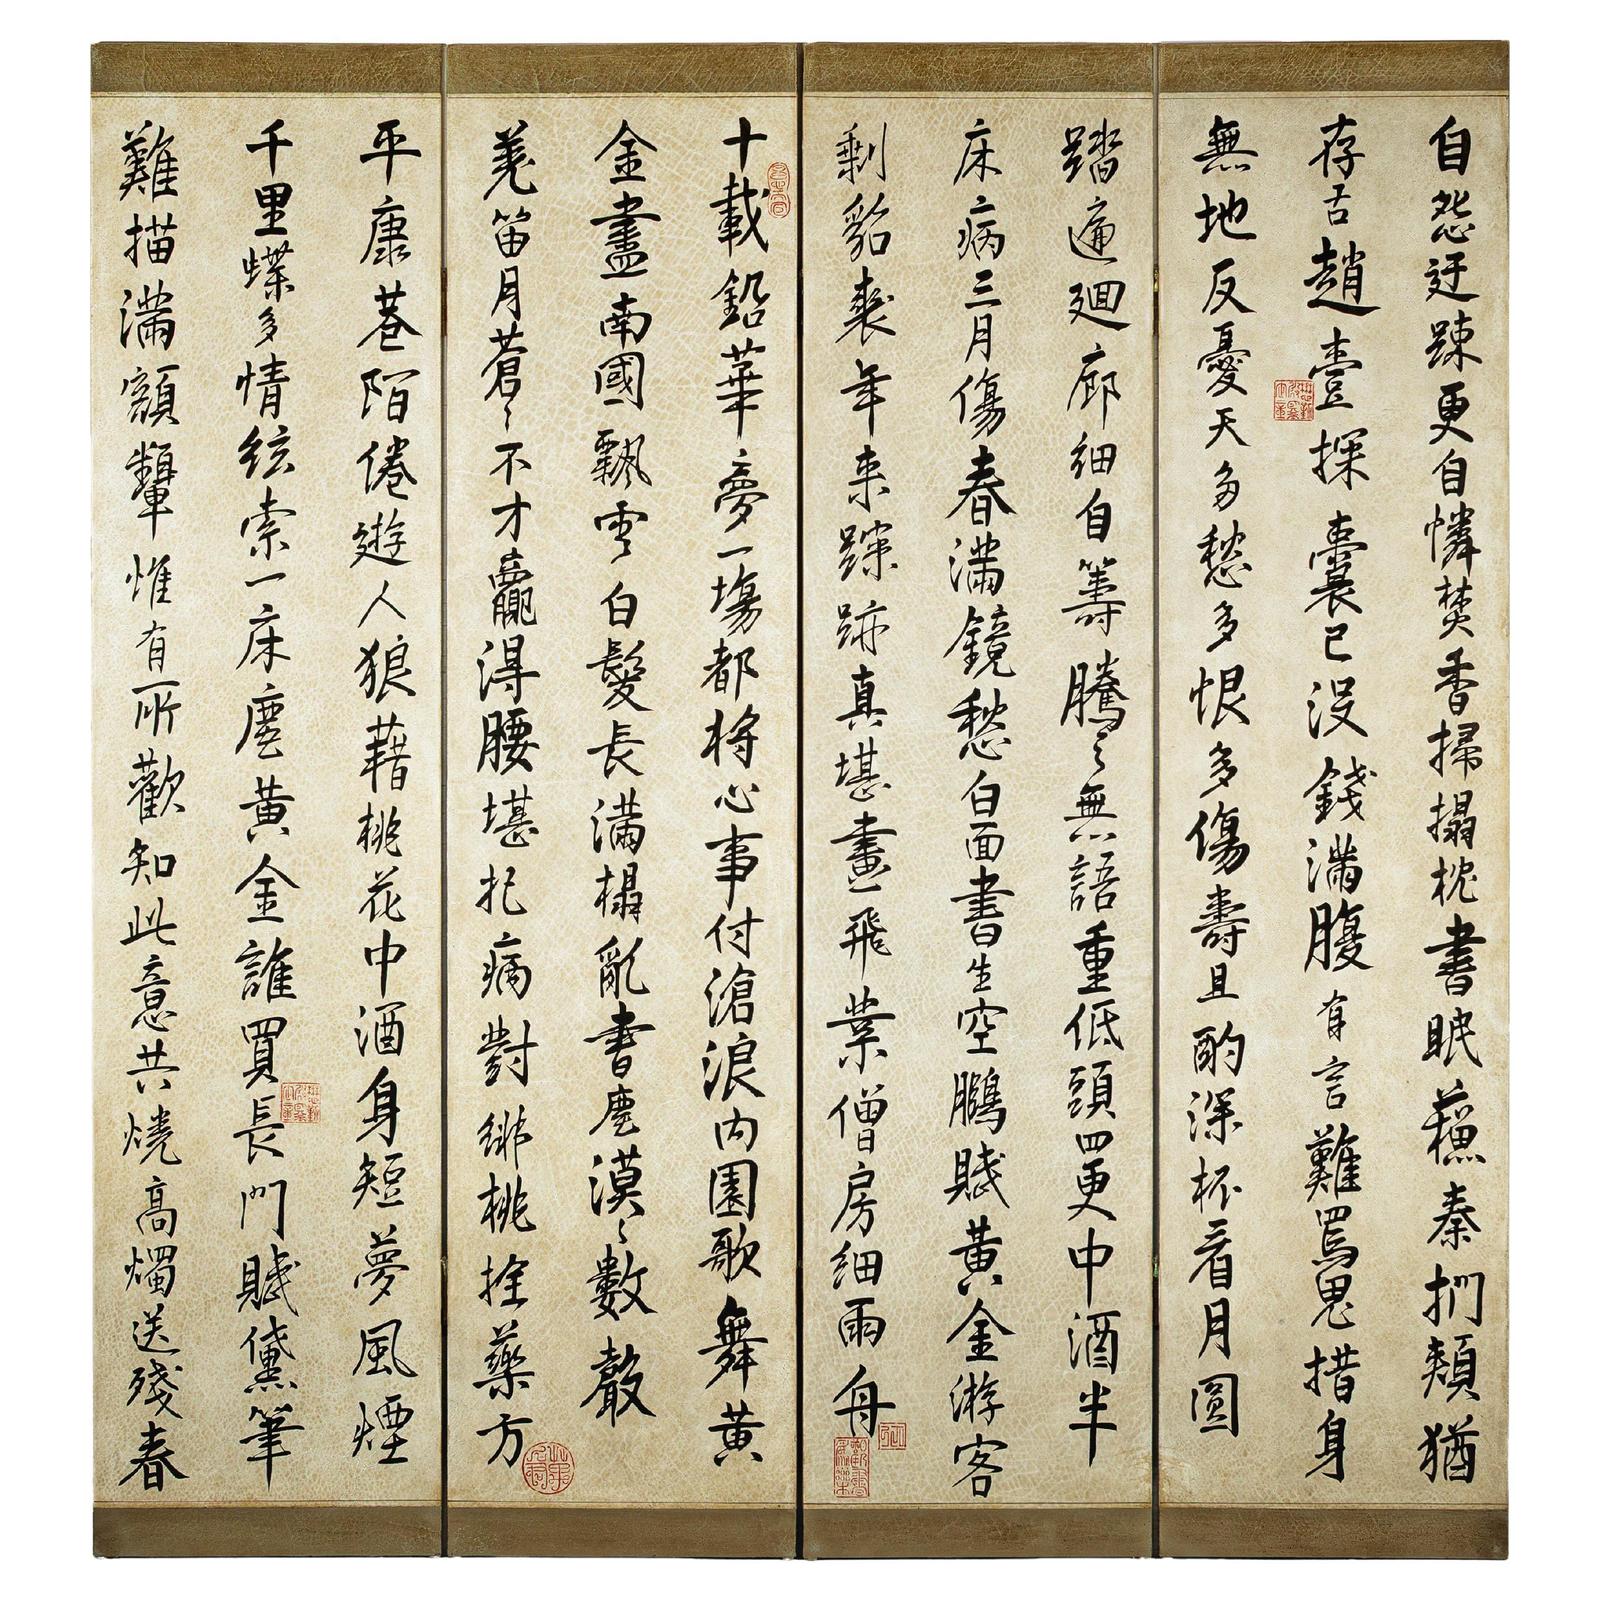 自怨迂踈更自憐焚香掃搨枕書眠蘓秦捫頰猶
存舌趙壹探囊已沒錢滿腹有言難罵鬼措身
無地反憂天多愁多恨多傷壽且酌深杯看月圓
踏遍迴廊細自籌騰〻無語重低頭四更中酒半
床病三月傷春滿鏡愁白面書生空鵬賦黃金游客
剩貂裘年来踪跡真堪畫飛業僧房細雨舟
十載鉛華夢一場都將心事付滄浪内園歌舞黃
金盡南國飄零白髮長滿榻亂書塵漠〻數聲
羌笛月蒼〻不才贏得腰堪把病對緋桃拴藥方
平康巷陌倦遊人狼藉桃花中酒身短夢風煙
千里蝶多情絃索一床塵黃金誰買長門賦黛筆
難描滿額顰惟有所歡知此意共燒高燭送殘春